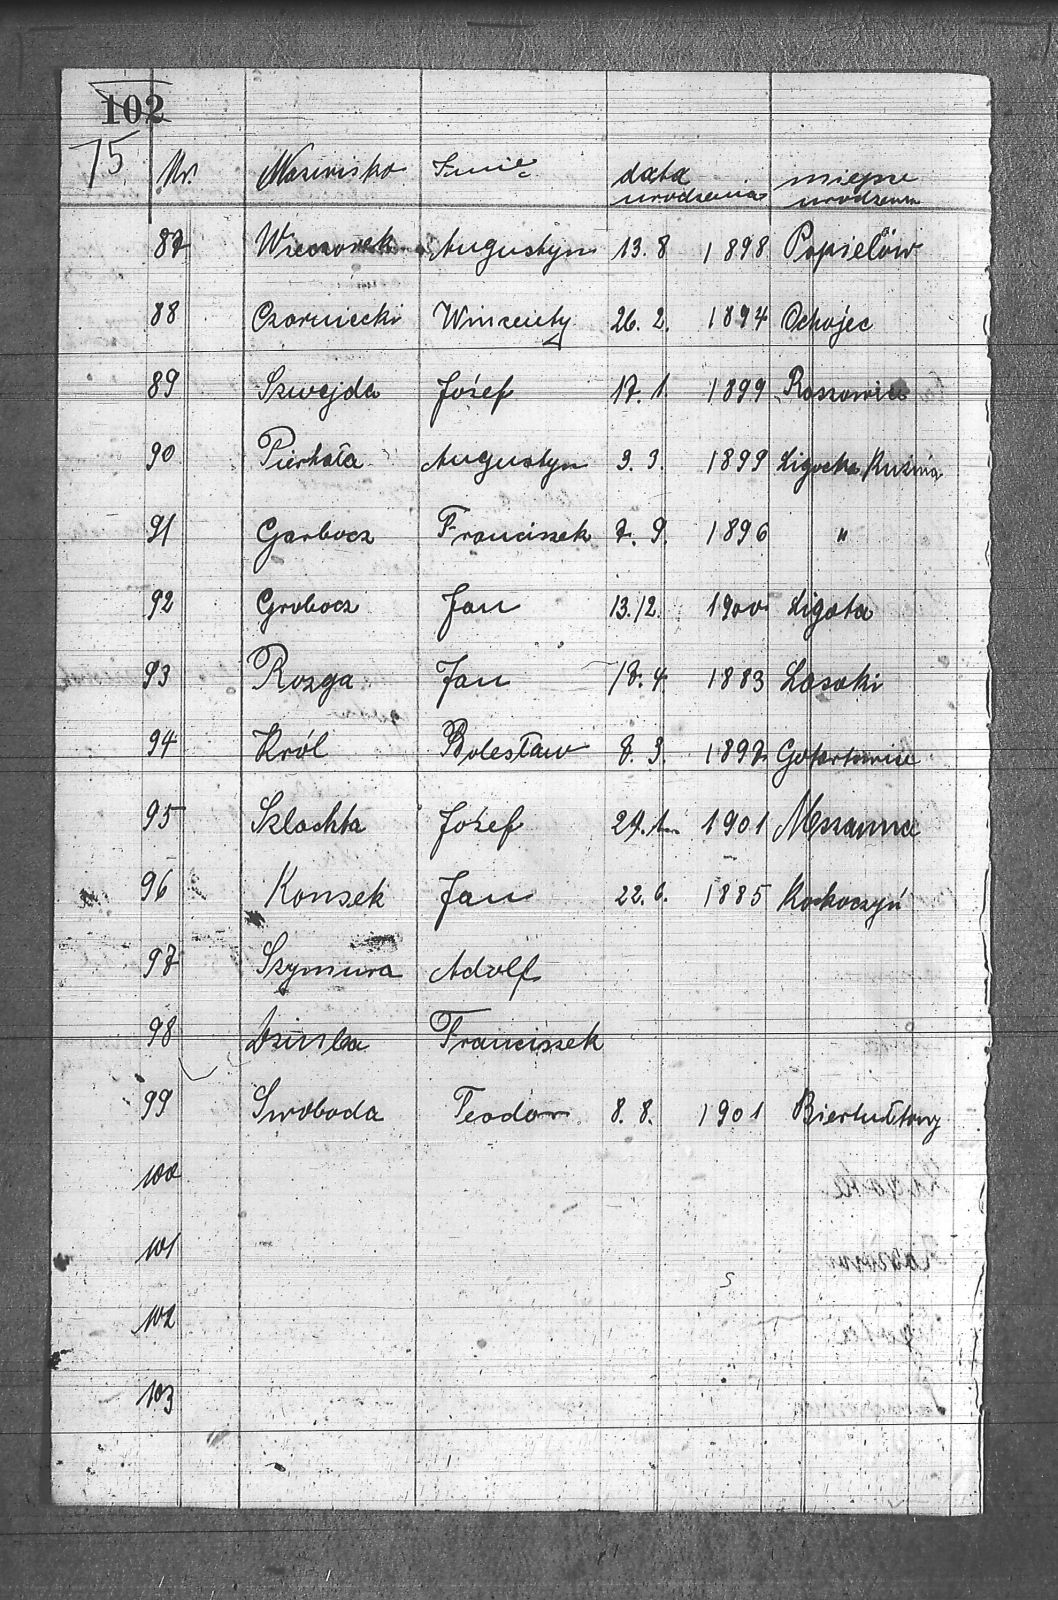 102
75
Nr. Nazwisko Imię data urodzenia miejsce urodzenia
87 Wieczorek Augustyn 13. 8 1898 Popielów
88 Czarniecki Winzenty 26. 2. 1894 Ochojec
89 Szwejda Józef 17. 1 1899 Roszowice
90 Pierhała Augustyn 3. 3. 1899 Ligocka Kuźnia
91 Garbocz Franciszek 7. 9. 1896 "
92 Grobocz Jan 13. 12. 1900 Ligota
93 Rozga Jan 18. 4 1883 Lasoki
94 Król Bolesław 7. 3. 1897 Gotartowice
95 Szlachta Józef 24. 1. 1901 Mszanna
96 Konsek Jan 22. 6. 1885 Kokoczyń
97 Szymura Adolf
98 Franciszek
99 Swoboda Teodor 8. 8. 1901 Biertułtowy
100
101
102
103